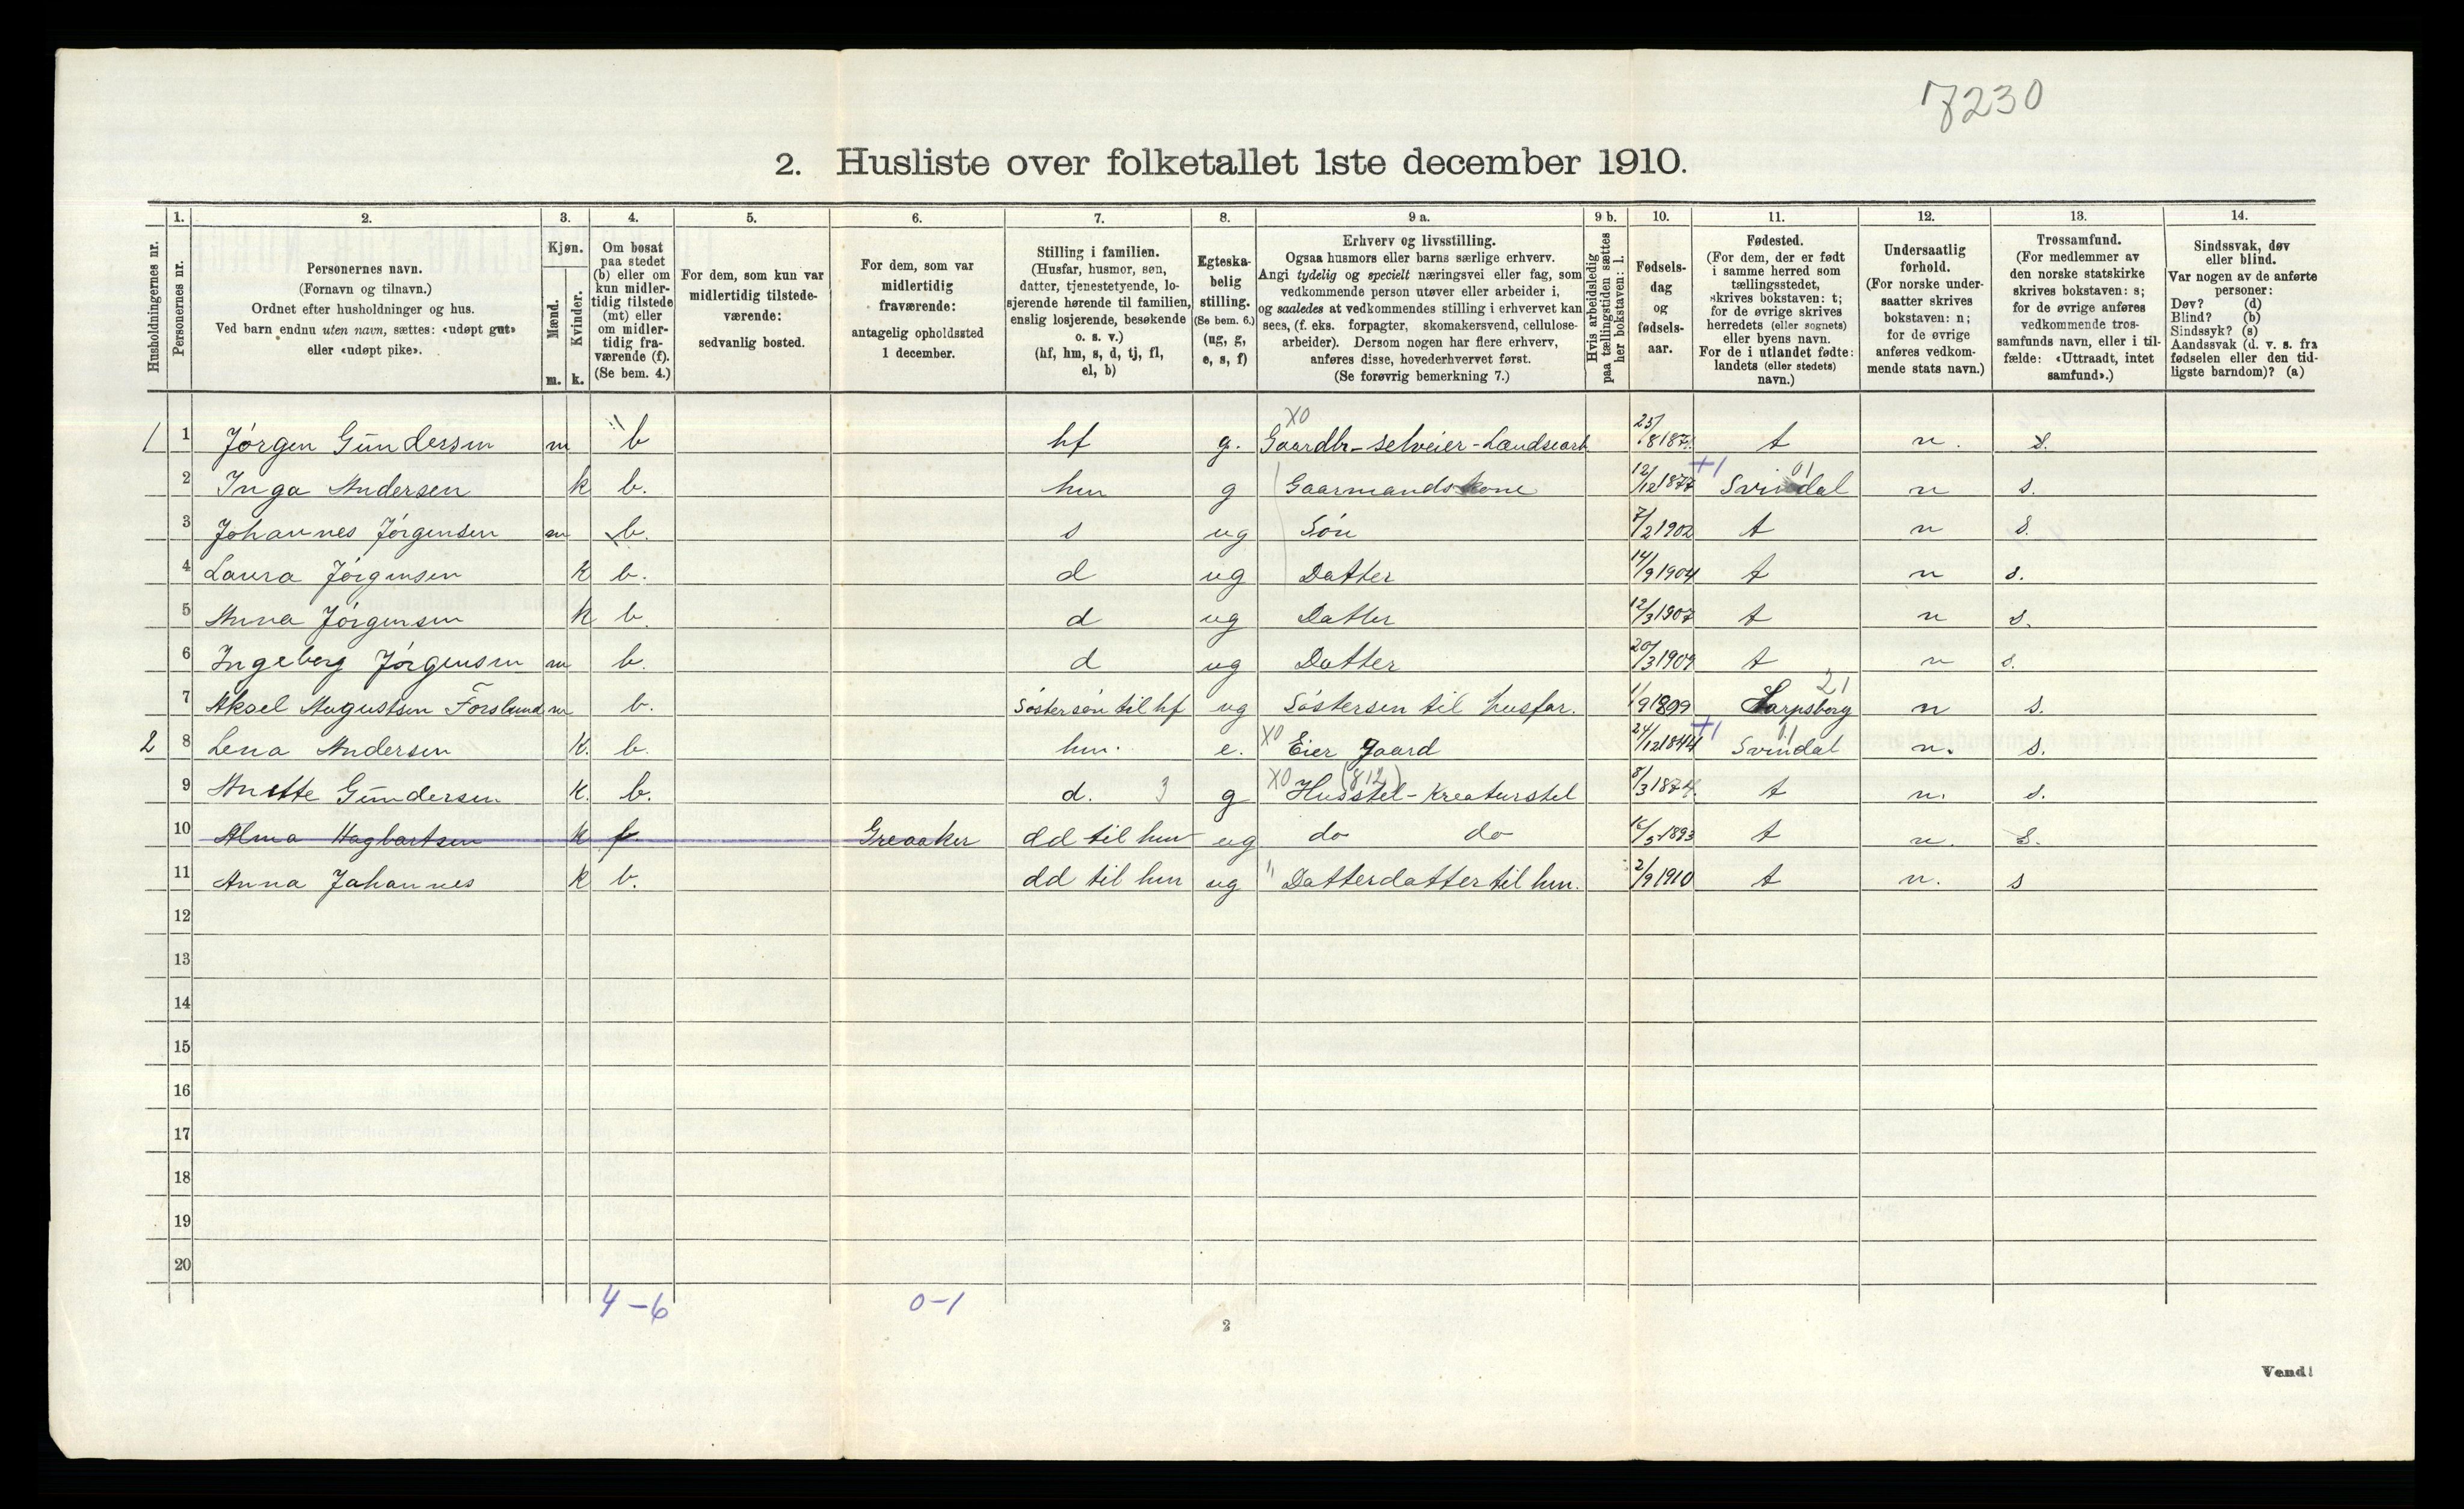 7230
2. Husliste over folketallet 1ste december 1910.
1. 2. 3. 4. 5. 6. 7. 8. 9 a. 9 b. 10. 11. 12. 13. 14.
Husholdningernes nr.
Personernes nr.
Personernes navn.
(Fornavn og tilnavn.)
Ordnet efter husholdninger og hus.
Ved barn endnu uten navn, sættes: «udøpt gut»
eller «udøpt pike».
Kjøn.
Mænd.
Kvinder.
m. k.
Om bosat
paa stedet
(b) eller om
kun midler-
tidig tilstede
(mt) eller
om midler-
tidig fra-
værende (f).
(Se bem. 4.)
For dem, som kun var
midlertidig tilstede-
værende:
sedvanlig bosted.
For dem, som var
midlertidig
fraværende:
antagelig opholdssted
1 december.
Stilling i familien.
(Husfar, husmor, søn,
datter, tjenestetyende, lo-
sjerende hørende til familien,
enslig losjerende, besøkende
o. s. v.)
(hf, hm, s, d, tj, fl,
el, b)
Egteska-
belig
stilling.
(Se bem. 6.)
(ug, g,
e, s, f)
Erhverv og livsstilling.
Ogsaa husmors eller barns særlige erhverv.
Angi tydelig og specielt næringsvei eller fag, som
vedkommende person utøver eller arbeider i,
og saaledes at vedkommendes stilling i erhvervet kan
sees, (f. eks. forpagter, skomakersvend, cellulose-
arbeider). Dersom nogen har flere erhverv,
anføres disse, hovederhvervet først.
(Se forøvrig bemerkning 7.)
Hvis arbeidsledig
paa tællingstiden sættes
her bokstaven: l.
Fødsels-
dag
og
fødsels-
aar.
Fødested.
(For dem, der er født
i samme herred som
tællingsstedet,
skrives bokstaven: t;
for de øvrige skrives
herredets (eller sognets)
eller byens navn.
For de i utlandet fødte:
landets (eller stedets)
navn.)
Undersaatlig
forhold.
(For norske under-
saatter skrives
bokstaven: n;
for de øvrige
anføres vedkom-
mende stats navn.)
Trossamfund.
(For medlemmer av
den norske statskirke
skrives bokstaven: s;
for de øvrige anføres
vedkommende tros-
samfunds navn, eller i til-
fælde: «Uttraadt, intet
samfund».)
Sindssvak, døv
eller blind.
Var nogen av de anførte
personer:
Døv? (d)
Blind? (b)
Sindssyk? (s)
Aandssvak (d. v. s. fra
fødselen eller den tid-
ligste barndom)? (a)
X0
1 1 Jørgen Gundersen m b hf g. Gaardbr-selveier-Landsearb. 25/8 187 t n. s.
+1 01
2 Inga Andersen k b. hm g Gaarmandskone 12/12 1877 Svindal n s.
3 Johannes Jørgensen m b. s ug Søn 7/2 1902 t n s.
4 Laura Jørgensen k b. d ug Datter 14/9 1904 t n s.
5 Anna Jørgensen k b. d ug Datter 12/3 1907 t n s.
6 Ingeborg Jørgensen m b. d ug Datter 20/3 1909 t n s.
21
7 Aksel Augustsen Forslund m b. Søstersøn til hf ug Søstersen til husfar. 1/9 1899 Sarpsborg n s.
+1 01
2 8 Lena Andersen k. b. hm. e. X0 Eier gaard 24/12 1844 Svindal n. s.
9 Anette Gundersen k. b. d. 3 g X0 (812) Husstel-Kreaturstel 8/3 1874. t n. s.
10 Alma Hagbartsen k f. Greaaker dd til hm ug do do 16/5 1893 t n. s.
11 Anna Johannes k b. dd til hm ug " Datterdatter til hm. 2/9 1910 t n. s
12
13
14
15
16
17
18
19
20
4-6 0-1
2
Vend!